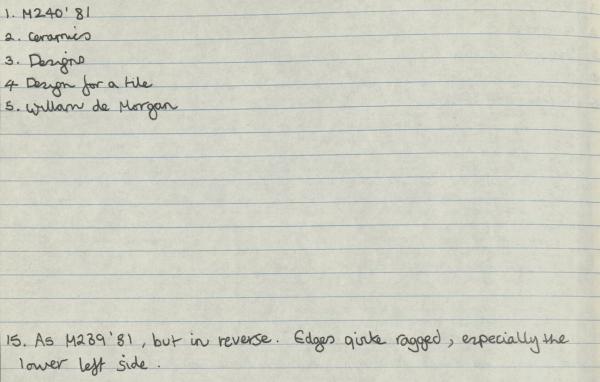 1. M240'81
2. Ceramics
3. Designs
4 Design for a tile
5. William de Morgan
15. As M239'81, but in reverse. Edges qiute ragged, especially the
lower left side.